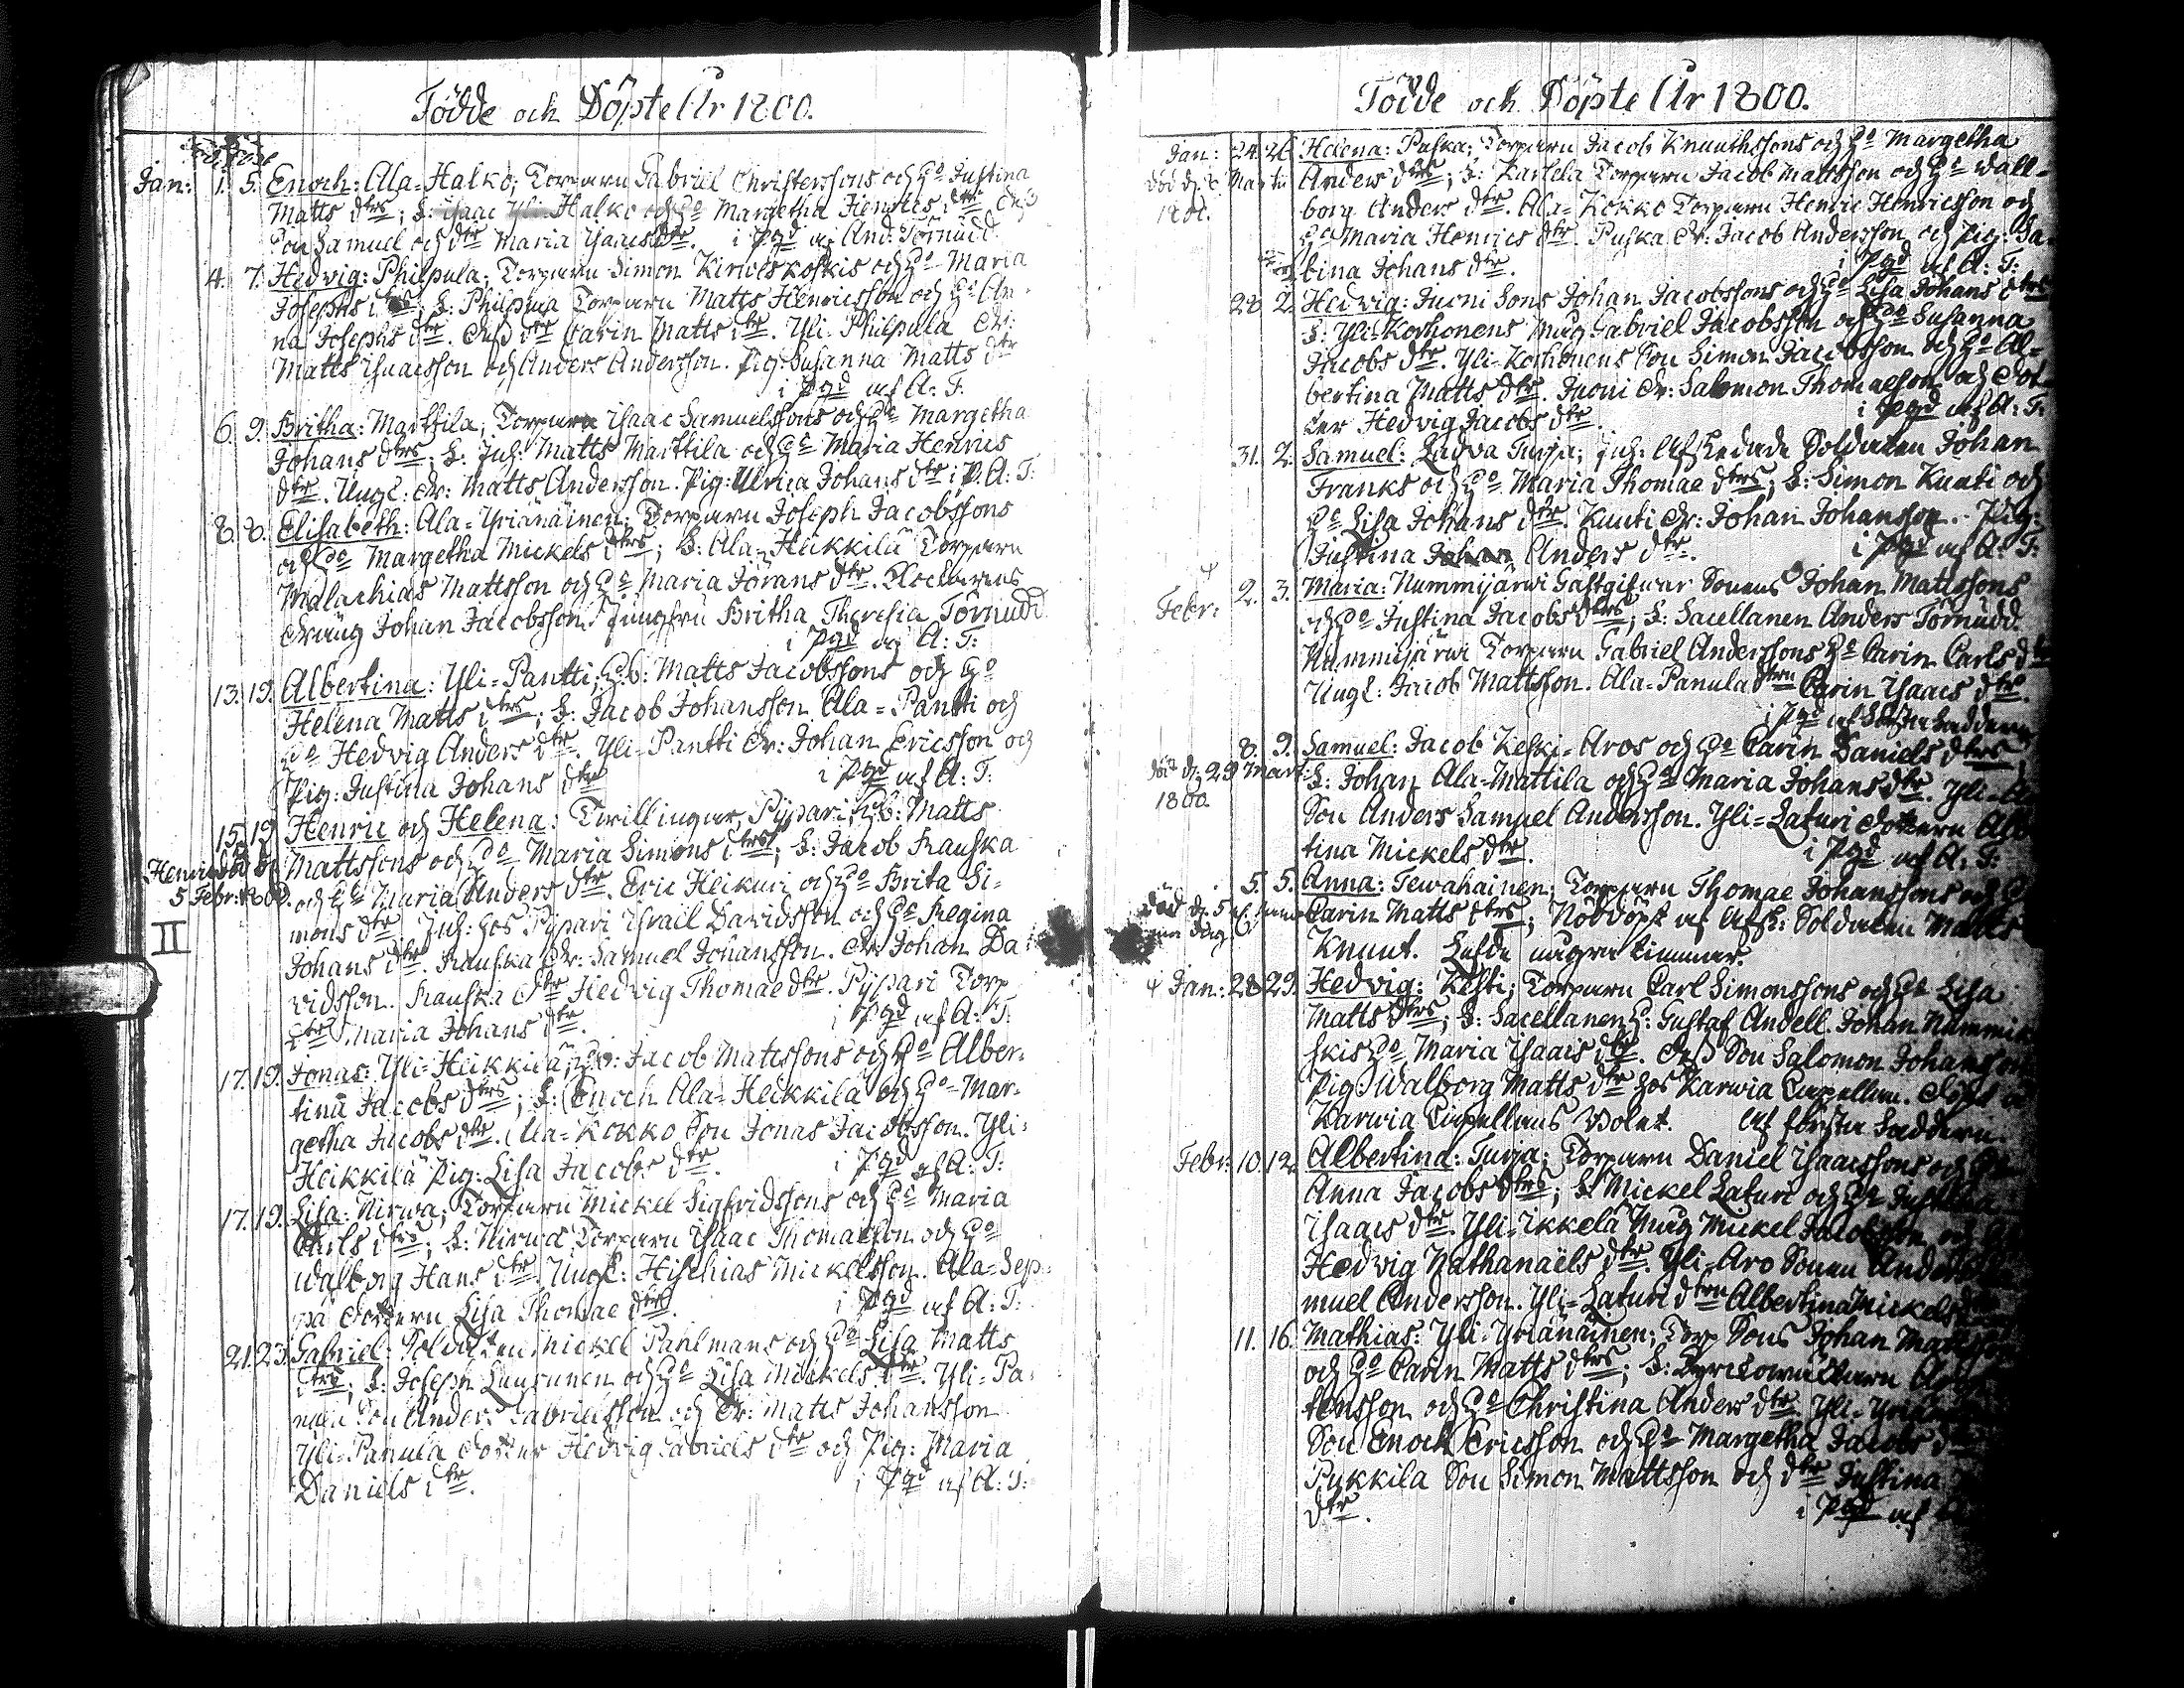 Födde och Döpte År 1800.
Jan: 1. 5. Enoch: Ala-Halko; Torparn Gabriel Christerssons och H:o Justina
Matts dtrs; F: Isaac Yli-Halko och H:o Margetha Henrics dtr
Son Samuel och dtr Maria Isaacs dtr. i Pgd af And: Törnudd.
4. 7. Hedvig: Philpula; Torparn Simon Kirweskoskis och H:o Maria
Josephs dtrs; F: Philpula Torparn Matts Henricsson och H:o An-
na Josephs dtr. dtr Carin Matts dtr. Yli-Philpula dr:
Matts Isaacsson och Anders Andersson. Pig: Susanna Matts dtr
i Pgd af A: T:
6. 9. Britha: Marttila; Torparn Isaac Samuelssons och H:o Margetha
Johans dtrs; F: Inh: Matts Marttila och H:o Maria Henrics
dtr. Ungl: dr: Matts Andersson. Pig: Ulrica Johans dtr i P. A: T:
8. 8. Elisabeth: Ala-Yriänäinen; Torparn Joseph Jacobssons
och H:o Margetha Mickels dtrs; F: Ala-Heikkilä Torparn
Malachias Mattsson och H:o Maria Jörans dtr. Klockarens
dräng Johan Jacobsson. Jungfru Britha Theresia Törnudd
i Pgd af A: T:
13. 19. Albertina: Yli-Pantti; H.b: Matts Jacobssons och H:o
Helena Matts dtrs; F: Jacob Johansson Ala-Pantti och
H:o Hedvig Anders dtr. Yli-Pantti dr: Johan Ericsson och
Pig: Justina Johans dtr i Pgd af A: T:
15. 19. Henric och Helena: Twillingar, Pypari; H.b: Matts
Henric död d.
5 Febr: 1800.
Mattssons och H:o Maria Simons dtrs; F: Jacob Rauska
och H:o Maria Anders dtr. Eric Heikuri och H:o Brita Si-
II
mons dtr. Inh: hos Pypari Israël Davidsson och H:o Regina
Johans dtr. Rauska dr: Samuel Johansson. dr Johan Da-
vidsson. Rauska dtr Hedvig Thomae dtr. Pypari Torp
dtr Maria Johans dtr. i Pgd af A: T:
17. 19. Jonas: Yli-Heikkilä; H.b: Jacob Mattssons och H:o Alber-
tina Jacobs dtrs; F: Enoch Ala-Heikkilä och H:o Mar-
getha Jacobs dtr. Ala-Kokko Son Jonas Jacobsson. Yli-
Heikkilä Pig: Lisa Jacobs dtr. i Pgd af A: T:
17. 19. Lisa: Nirwa; Torparn Mickel Sigfridssons och H:o Maria
Carls dtrs; F: Nirwa Torparn Isaac Thomaesson och H:o
Walborg Hans dtr. Ungl: Hischias Mickelsson. Ala-Sep-
pä dottern Lisa Thomae dtr. i Pgd af A: T:
21. 23. Gabriel: Soldaten Mickel Pahlmans och H:o Lisa Matts
dtrs; F: Joseph Luurunen och H:o Lisa Mickels dtr. Yli-Pa-
nula Son Anders Gabrielsson och dr: Matts Johansson
Yli-Panula dotter Hedvig Gabriels dtr och Pig: Maria
Daniels dtr. i Pgd af A: T:
Födde och Döpte År 1800.
Jan: 24. 26. Helena: Puska; Torparn Jacob Knuuthssons och H:o Margetha
död d: Martii
Anders dtrs; F: Karhela Torparn Jacob Mattsson och H:o Wall-
borg Anders dtr. Ala-Kokko Torparn Henric Henricsson och
H:o Maria Henrics dtr. Puska dr: Jacob Andersson och Pig: Sa-
bina Johans dtr. i Pgd af A: T:
28 2. Hedvig: Juoni Sons Johan Jacobssons och H:o Lisa Johans dtrs
F: Yli-Korhonens Måg Gabriel Jacobsson och H:o Susanna
Jacobs dtr. Yli-Korhonens Son Simon Jacobsson och H:o Al-
bertina Matts dtr. Juoni dr: Salomon Thomaesson och dot-
ter Hedvig Jacobs dtr. i Pgd af A: T:
31. 2. Samuel: Ladva Turja; Inh: Afskedade Soldaten Johan
Franks och H:o Maria Thomae dtrs; F: Simon Kunti och
H:o Lisa Johans dtr. Kunti dr: Johan Johansson. Pig:
Justina Anders dtr. i Pgd af A: T:
Febr: 2. 3. Maria: Nummijärwi Gästgifwar Sonens Johan Mattssons
och H:o Justina Jacobs dtrs; F: Sacellanen Anders Törnudd.
Nummijärwi Torparn Gabriel Anderssons H:o Carin Carls dtr
Ungl: Jacob Mattsson. Ala-Panula dtrn Carin Isaacs dtr.
i Pgd af
8. 9. Samuel: Jacob Keski-Aros och H:o Carin Daniels dtrs
död d: 29 Martii
1800.
F: Johan Ala-Mattila och H:o Maria Johans dtr. Yli-
Son Anders Samuel Andersson. Yli-Laturi dottern Alb
tina Mickels dtr. i Pgd af A: T:
5. 5. Anna: Tewahainen; Torparn Thomae Johanssons och
död d: 5
Carin Matts dtrs; Nöddöpt af Afsk: Soldaten Matts
Knuut. Lefde några timmar.
Jan: 28 29. Hedvig: Kesti; Torparn Carl Simonssons och H:o Lisa
Matts dtrs; F: Sacellanen H: Gustaf Andell. Johan Nummi-
skis H:o Maria Isaacs dtr. Son Salomon Johansson
Pig: Walborg Matts dtr hos Karwia Capellan. döpt
Karwia Capellans Bolet. af förster Faddern.
Febr: 10. 12. Albertina: Turja; Torparn Daniel Isaacssons och
Anna Jacobs dtrs; F: Mickel Laturi och H:o Justina
Isaacs dtr. Yli-Ikkelä Måg Mickel Jacobsson och
Hedvig Nathanaëls dtr. Yli-Aro Sonen Anders
muel Andersson. Yli-Laturi dtrn Albertina Mickels
11. 16. Mathias: Yli-Yriänäinen; Torp Sons Johan Mattssons
och H:o Carin Matts dtrs; F:
tensson och H:o Christina Anders dtr. Yli-
Son Enoch Ericsson och H:o Margetha Jacobs
Pukkila Son Simon Mattsson och dtr Justina
dtr. i Pgd af